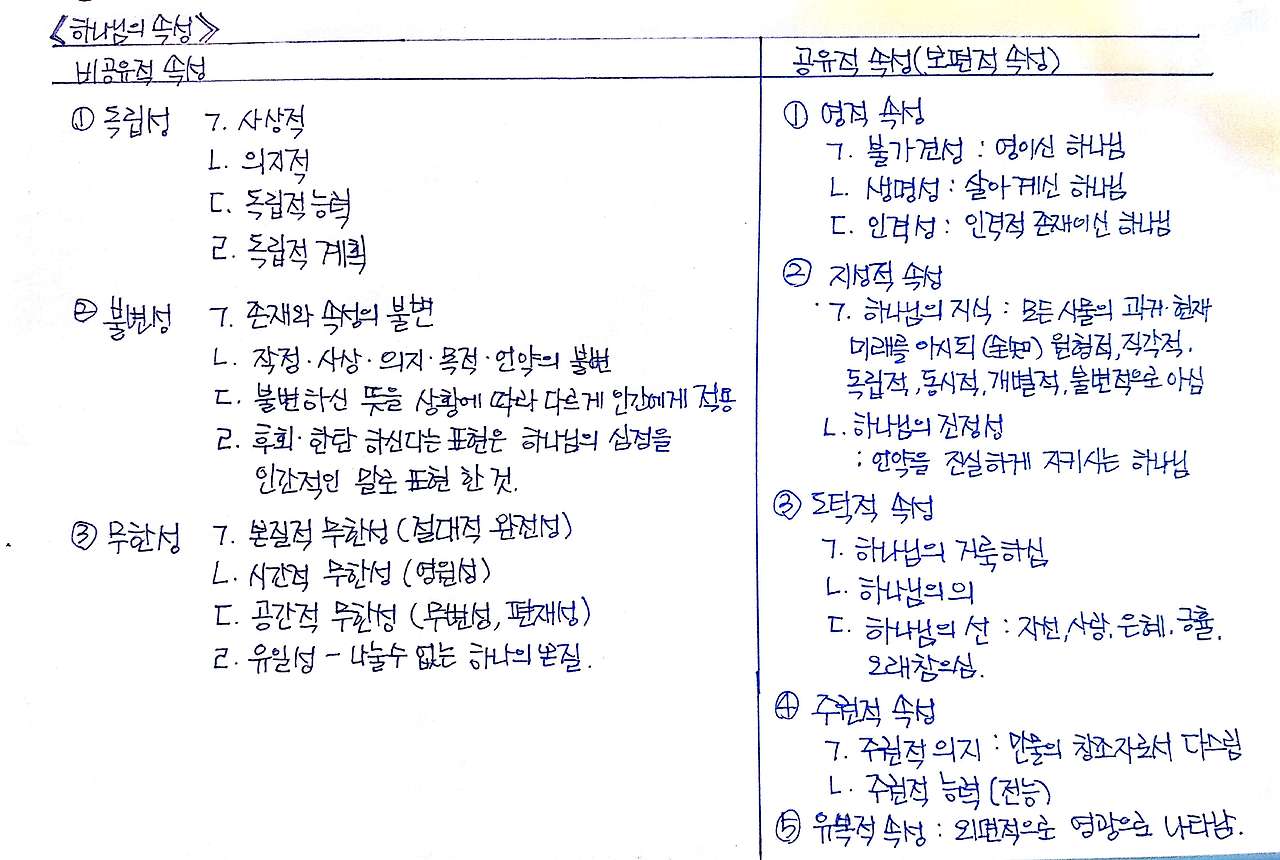 《하나님의 속성》
비공유적 속성
① 독립성 ㄱ. 사상적
ㄴ. 의지적
ㄷ. 독립적 능력
ㄹ. 독립적 계획
② 불변성 ㄱ. 존재와 속성의 불변
ㄴ. 작정·사상·의지·목적·언약의 불변
ㄷ. 불변하신 뜻을 상황에 따라 다르게 인간에게 적용
ㄹ. 후회·한탄 하신다는 표현은 하나님의 심정을
인간적인 말로 표현 한 것.
③ 무한성 ㄱ. 본질적 무한성 (절대적 완전성)
ㄴ. 시간적 무한성 (영원성)
ㄷ. 공간적 무한성 (무변성, 편재성)
ㄹ. 유일성 - 나눌수 없는 하나의 본질.
공유적 속성(보편적 속성)
① 영적 속성
ㄱ. 불가견성 : 영이신 하나님
ㄴ. 생명성 : 살아계신 하나님
ㄷ. 인격성 : 인격적 존재이신 하나님
② 지성적 속성
ㄱ. 하나님의 지식 : 모든 사물의 과거·현재
미래를 아시되 (全知) 원형적, 직각적,
독립적, 동시적, 개별적, 불변적으로 아심
ㄴ. 하나님의 진정성
: 언약을 진실하게 지키시는 하나님
③ 도덕적 속성
ㄱ. 하나님의 거룩하심
ㄴ. 하나님의 의
ㄷ. 하나님의 선 : 자선, 사랑, 은혜, 긍휼,
오래참으심.
④ 주권적 속성
ㄱ. 주권적 의지 : 만물의 창조자로서 다스림
ㄴ. 주권적 능력 (전능)
⑤ 유복적 속성 : 외면적으로 영광으로 나타남.